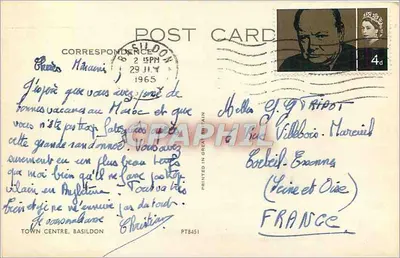 POST CARD
CORRESPONDENCE
BASILDON
2 15PM
29 JLY
1965
4d
Chères Mamie
J'espère que vous avez joui de
bonnes vacances au Maroc et que
vous n'êtes pas trop fatiguées de
cette grande randonnée. Vous avez
surement eu un plus beau temps
que moi bien qu'il ne fasse pas trop
vilain en Angleterre. Tout va très
bien et je ne m'ennuie pas du tout.
Je vous embrasse
Christian
Melles G. GTRIPOT
Rue Villebois-Mareuil
Corbeil-Essonnes
(Seine et Oise)
FRANCE
PRINTED IN GREAT BRITAIN
TOWN CENTRE, BASILDON
PT8451